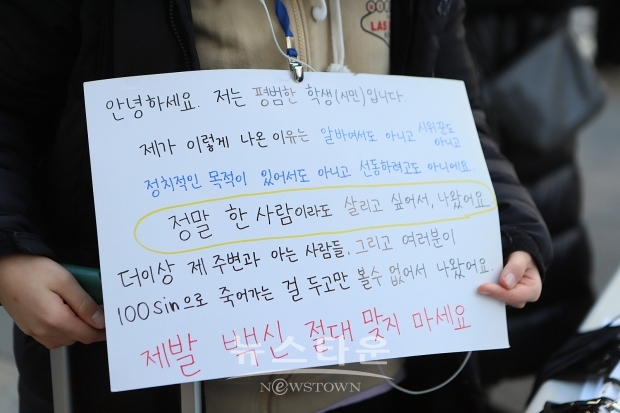 안녕하세요. 저는 평범한 학생(시민)입니다.
제가 이렇게 나온 이유는 알바여서도 아니고 시위꾼도 아니고
정치적인 목적이 있어서도 아니고 선동하려고도 아니에요
정말 한 사람이라도 살리고 싶어서, 나왔어요
더이상 제 주변과 아는 사람들, 그리고 여러분이
100sin으로 죽어가는 걸 두고만 볼수 없어서 나왔어요.
제발 백신 절대 맞지 마세요
뉴스타운
NEWSTOWN
LAS